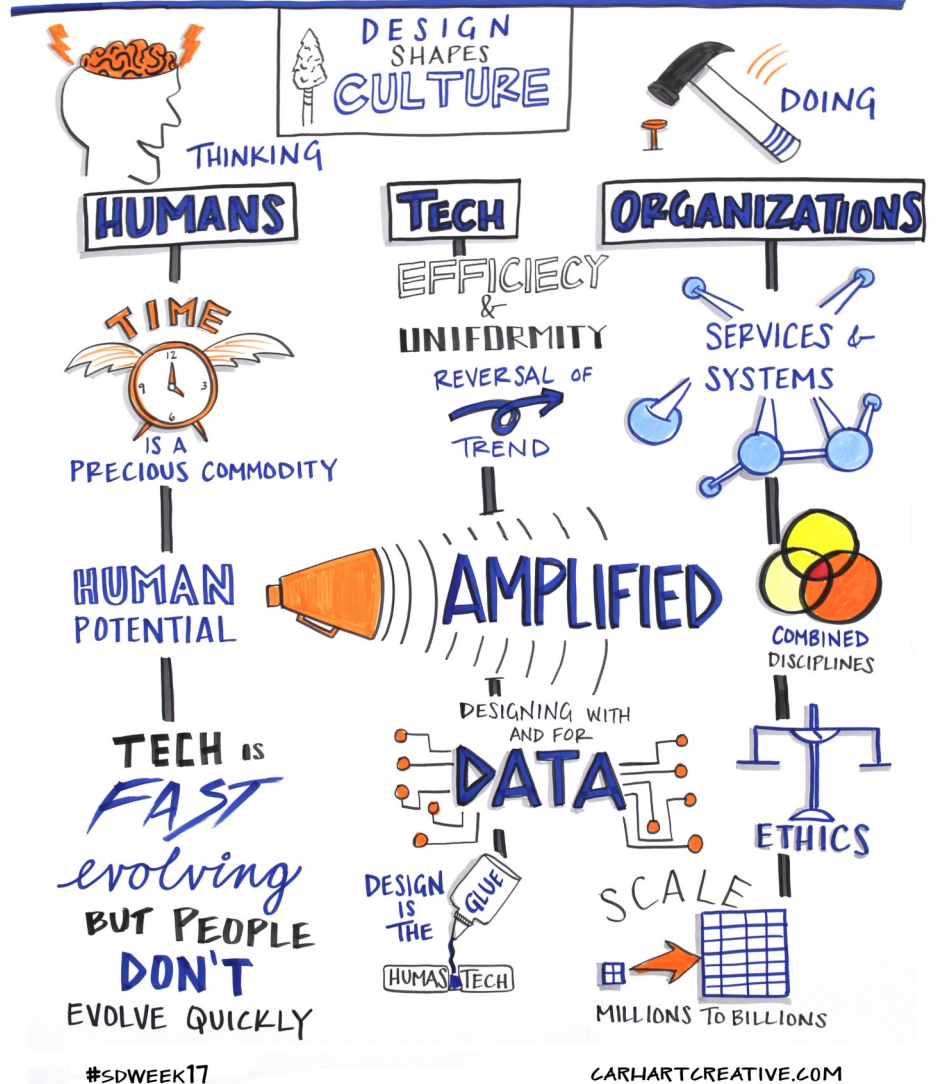 DESIGN
SHAPES
CULTURE
THINKING
DOING
HUMANS
TIME
12
9
3
6
IS A
PRECIOUS COMMODITY
HUMAN
POTENTIAL
TECH IS
FAST
evolving
BUT PEOPLE
DON'T
EVOLVE QUICKLY
TECH
EFFICIECY
&
UNIFORMITY
REVERSAL OF
TREND
AMPLIFIED
DESIGNING WITH
AND FOR
DATA
DESIGN
IS
THE
GLUE
HUMAS TECH
ORGANIZATIONS
SERVICES &
SYSTEMS
COMBINED
DISCIPLINES
ETHICS
SCALE
MILLIONS TO BILLIONS
#SDWEEK17
CARHARTCREATIVE.COM